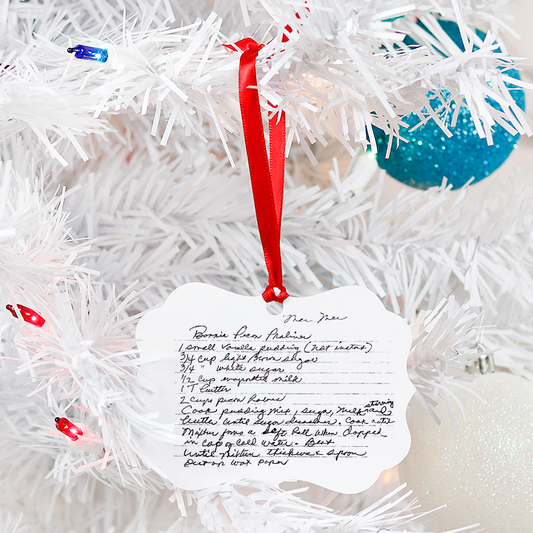 Mee Mee
Bonnie Pecan Pralines
1 small Vanilla pudding (not instant)
3/4 cup light Brown sugar
3/4 " White sugar
1/2 cup evaporated milk
1 T butter
2 cups pecan halves
Cook pudding mix, sugar, milk and stirring
butter until sugar dissolves. Cook
Mixture forms a soft ball When dropped
in cup of cold water. Beat
Until Mixture thickens & spoon
out on wax paper